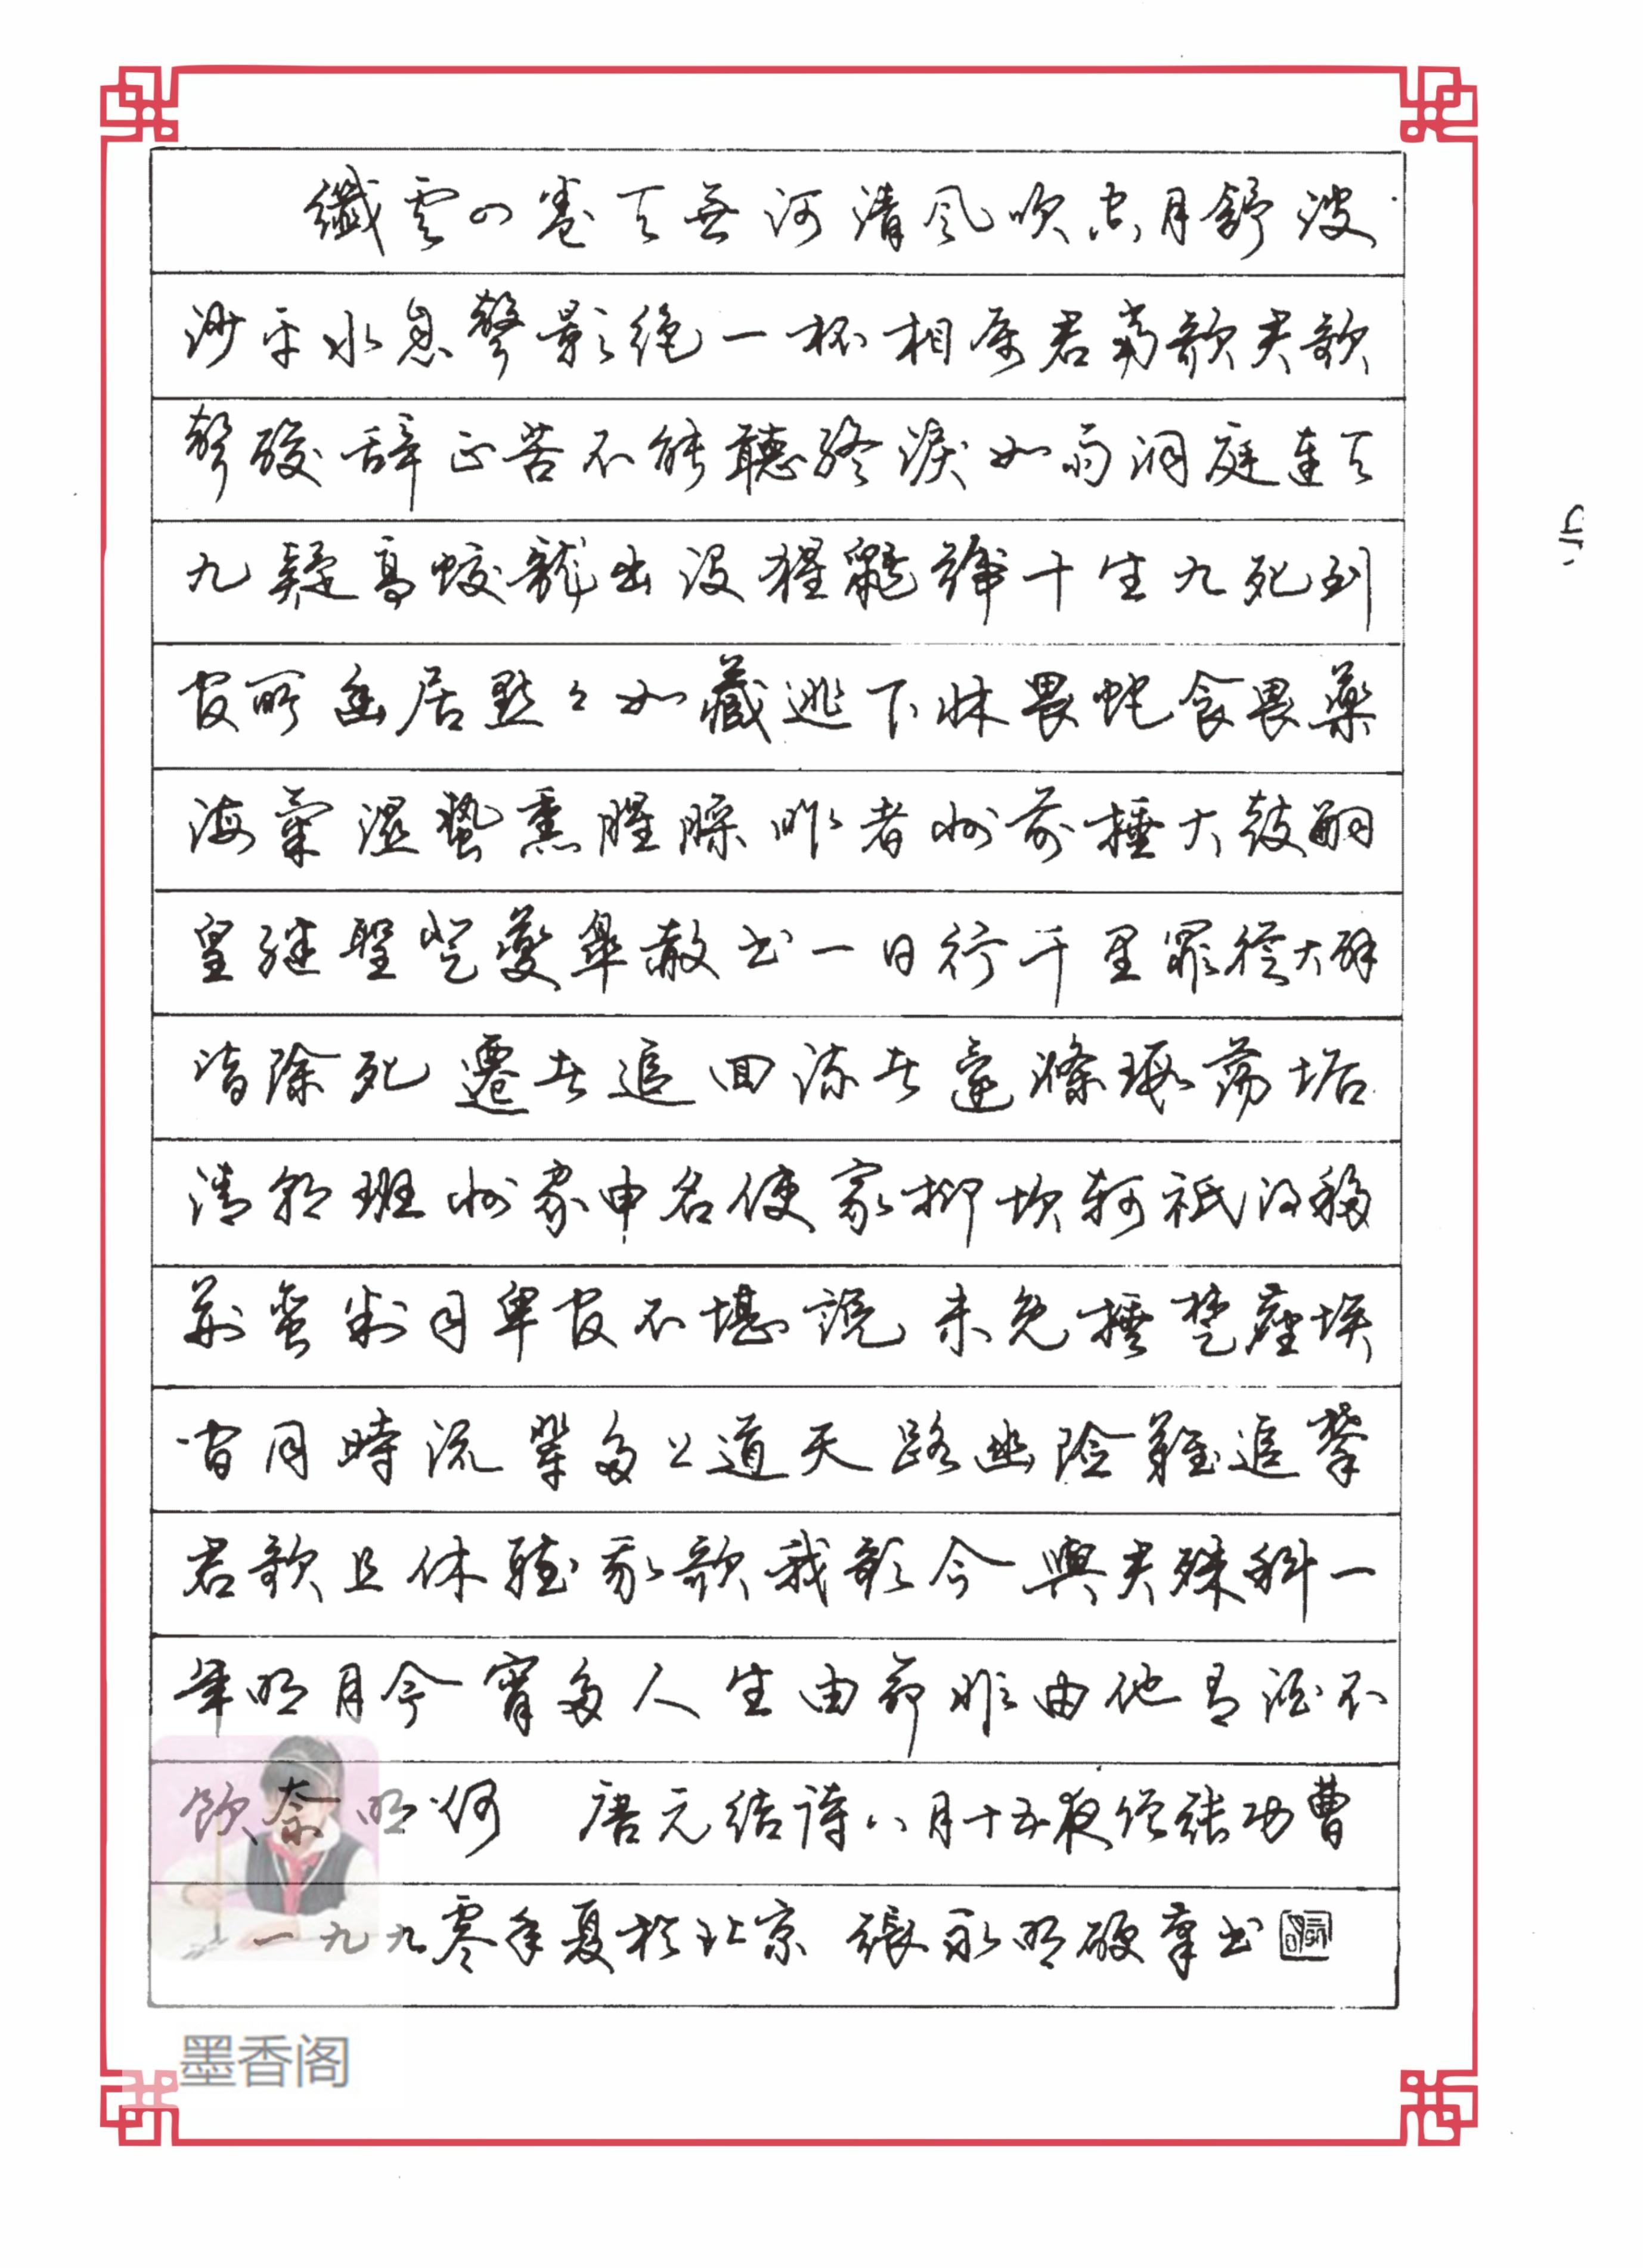 纖雲四卷天無河清風吹空月舒波
沙平水息聲影绝一杯相属君當歌君歌
聲酸辞正苦不能聽终淚如雨洞庭連天
九疑高蛟龍出没猩鼯號十生九死到
官所幽居默々如藏逃下牀畏蛇食畏藥
海氣濕蟄熏腥臊昨者州前捶大鼓嗣
皇繼聖登夔皋赦書一日行千里罪從大辟
皆除死遷者追回流者還滌瑕蕩垢
清朝班州家申名使家抑坎軻祗得移
荆蠻判司卑官不堪説未免捶楚塵埃
間同時流輩多上道天路幽险難追攀
君歌且休聽我歌我歌今與君殊科一
年明月今宵多人生由命非由他有酒不
飲奈明何 唐元结詩八月十五夜赠張功曹
一九九零年夏於北京 張永明硬筆书
墨香阁